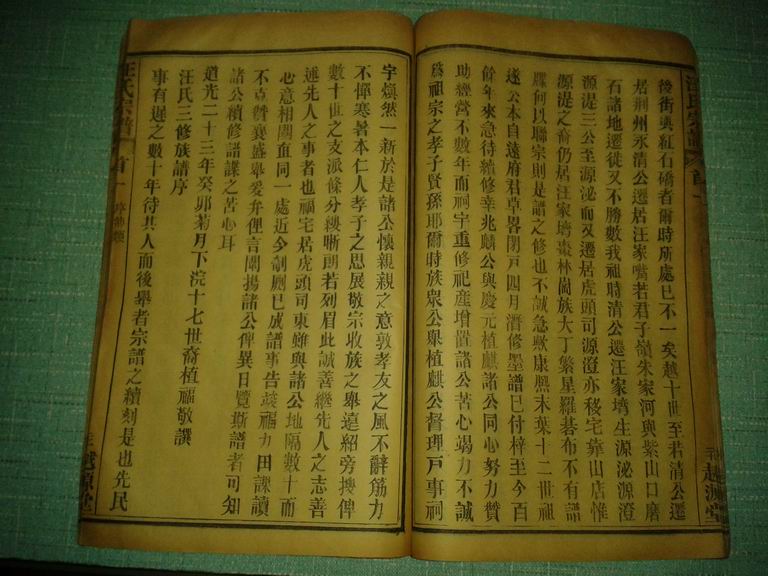 後街與紅石磡者爾時所處已不一矣越十世至若清公遷
居荆州永清公遷居汪家嘴若君子嶺朱家河與紫山口磨
石諸地遷徙又不勝數我祖時清公遷汪家塆生源泌源澄
源湜三公至源泌而又遷居虎頭司源澄亦移宅靠山店惟
源湜之裔仍居汪家塆棗林崗族大丁繁星羅碁布不有譜
牒何以聯宗則是譜之修也不誠急歟康熙末葉十二世祖
遂公本自遠府君草畧閉戸四月潛修墨譜已付梓至今百
餘年來急待續修幸兆麟公與慶元植麒諸公同心努力贊
助經營不數年而祠宇重修祀産增置諸公苦心竭力不誠
爲祖宗之孝子賢孫耶爾時族衆公舉植麒公督理戸事祠
宇煥然一新於是諸公懷親親之意敦孝友之風不辭筋力
不憚寒暑本仁人孝子之思展敬宗收族之舉遠紹旁搜俾
數十世之支派條分縷晰朗若列眉此誠善繼先人之志善
述先人之事者也福宅居虎頭司東雖與諸公地隔數十而
心意相關直同一處近今剞劂已成譜事告竣福力田課讀
不克贊襄盛舉爰弁俚言闡揚諸公俾異日覽斯譜者可知
諸公續修譜諜之苦心耳
道光二十三年癸卯菊月下浣十七世裔植福敬譔
汪氏三修族譜序
事有遲之數十年待其人而後舉者宗譜之續刻是也先民
汪氏宗譜
首一
越源堂